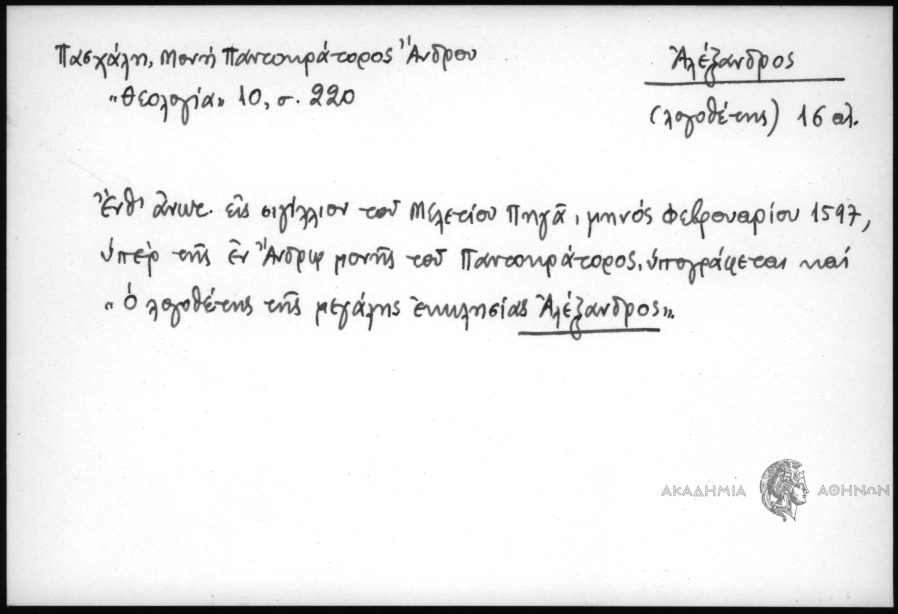 Πασχάλη, Μονή Παντοκράτορος Ἄνδρου
"Θεολογία" 10, σ. 220
Ἀλέξανδρος
(λογοθέτης) 16 αἰ.
Ἔνθ' ἀνωτ. εἰς σιγίλλιον τοῦ Μελετίου Πηγᾶ, μηνός Φεβρουαρίου 1597,
ὑπέρ τῆς ἐν Ἄνδρῳ μονῆς τοῦ Παντοκράτορος, ὑπογράφεται καί
"ὁ λογοθέτης τῆς μεγάλης ἐκκλησίας Ἀλέξανδρος".
ΑΚΑΔΗΜΙΑ ΑΘΗΝΩΝ